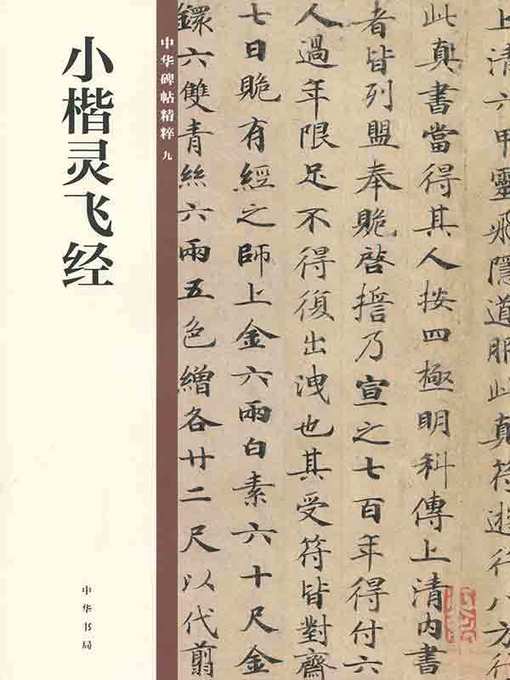 小楷灵飞经
中华碑帖精粹 九
中华书局
上清六甲靈飛隱道服此真符遊行八方行
此真書當得其人按四極明科傳上清內書
者皆列盟奉貺啓撎乃宣之七百年得付六
人過年限足不得復出洩也其受符皆對齋
七日貺有經之師上金六兩白素六十尺金
鐶六雙青絲六兩五色繒各廿二尺以代翦